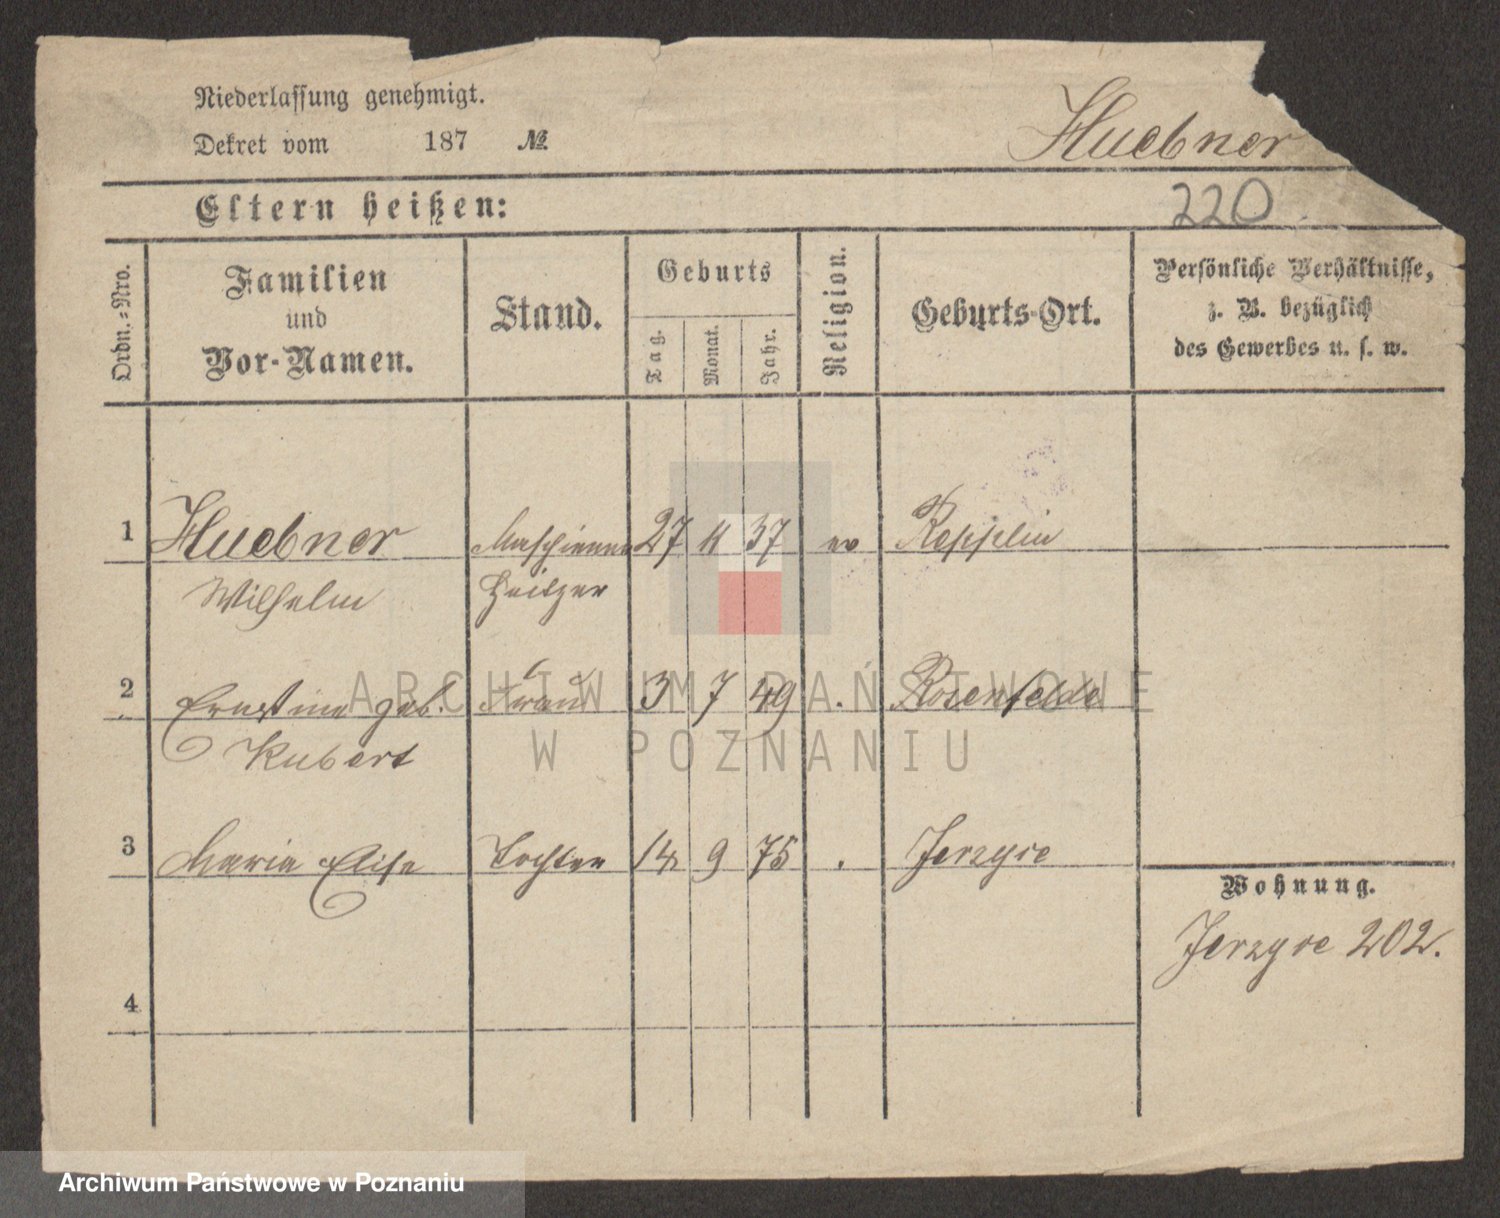 Niederlassung genehmigt.
Dekret vom 187 №
Huebner
220
Eltern heißen:
Ordn.-Nro.
Familien
und
Vor-Namen.
Stand.
Geburts
Tag.
Monat.
Jahr.
Religion.
Geburts-Ort.
Persönliche Verhältnisse,
z. B. bezüglich
des Gewerbes u. s. w.
1 Huebner Maschienen 27 11 37 ev Repplin
Wilhelm Heitzer
2 Ernstine geb. Frau 3 7 49 . Rosenfelde
Kubert
3 Maria Elise Tochter 14 9 75 . Jerzyce
Wohnung.
Jerzyce 202.
4
ARCHIWUM PAŃSTWOWE
W POZNANIU
Archiwum Państwowe w Poznaniu